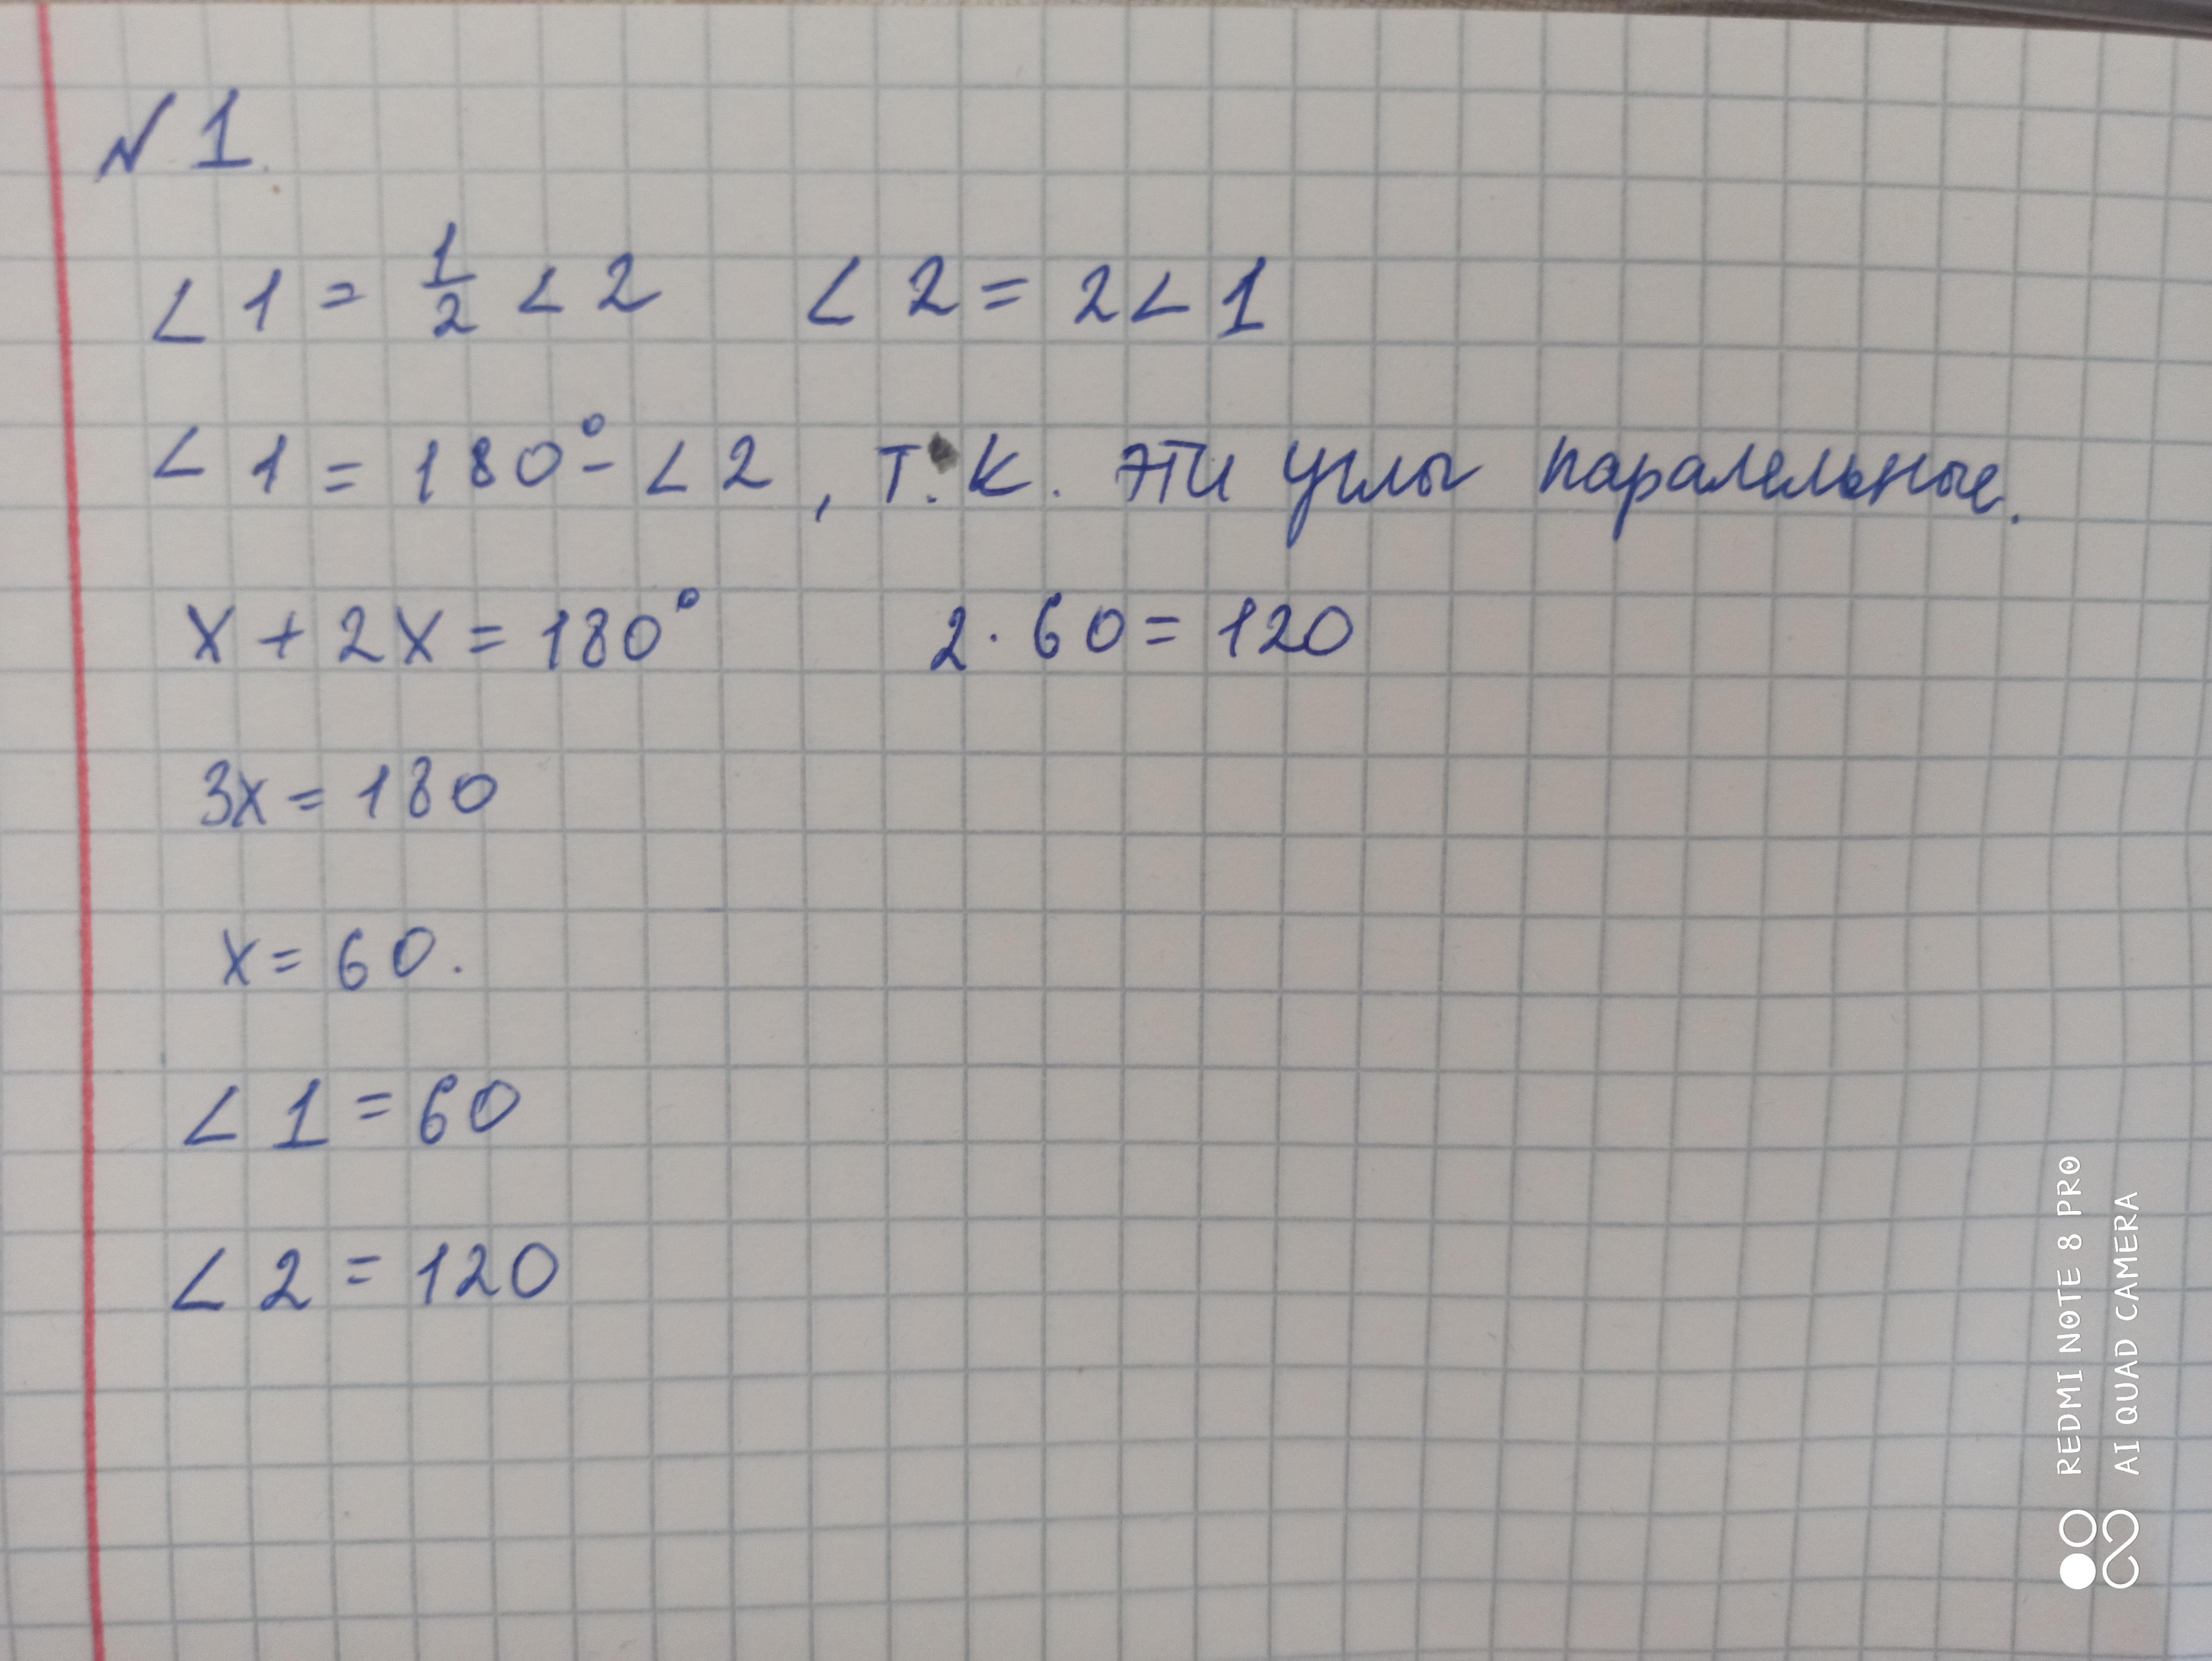 № 1.
∠1 = 1/2 ∠2   ∠2 = 2∠1
∠1 = 180° - ∠2, т.к. эти углы паралельные.
x + 2x = 180°   2 · 60 = 120
3x = 180
x = 60.
∠1 = 60
∠2 = 120
REDMI NOTE 8 PRO
AI QUAD CAMERA